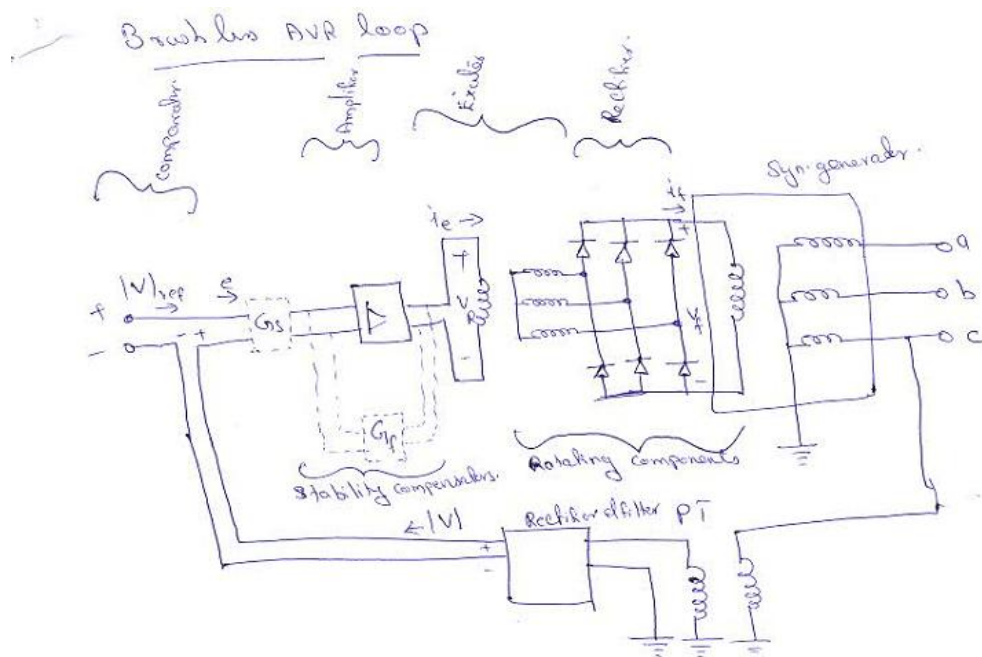 Brushless AVR loop
Comparator.
Amplifier
Exciter
Rectifier.
Syn. generator.
ie →
if →
|V|ref →
e →
+
-
- +
Gs
+
VR
-
+
Vf
-
a
b
c
Gf
Stability compensators.
Rotating components
Rectifier & filter PT
← |V|
+
-